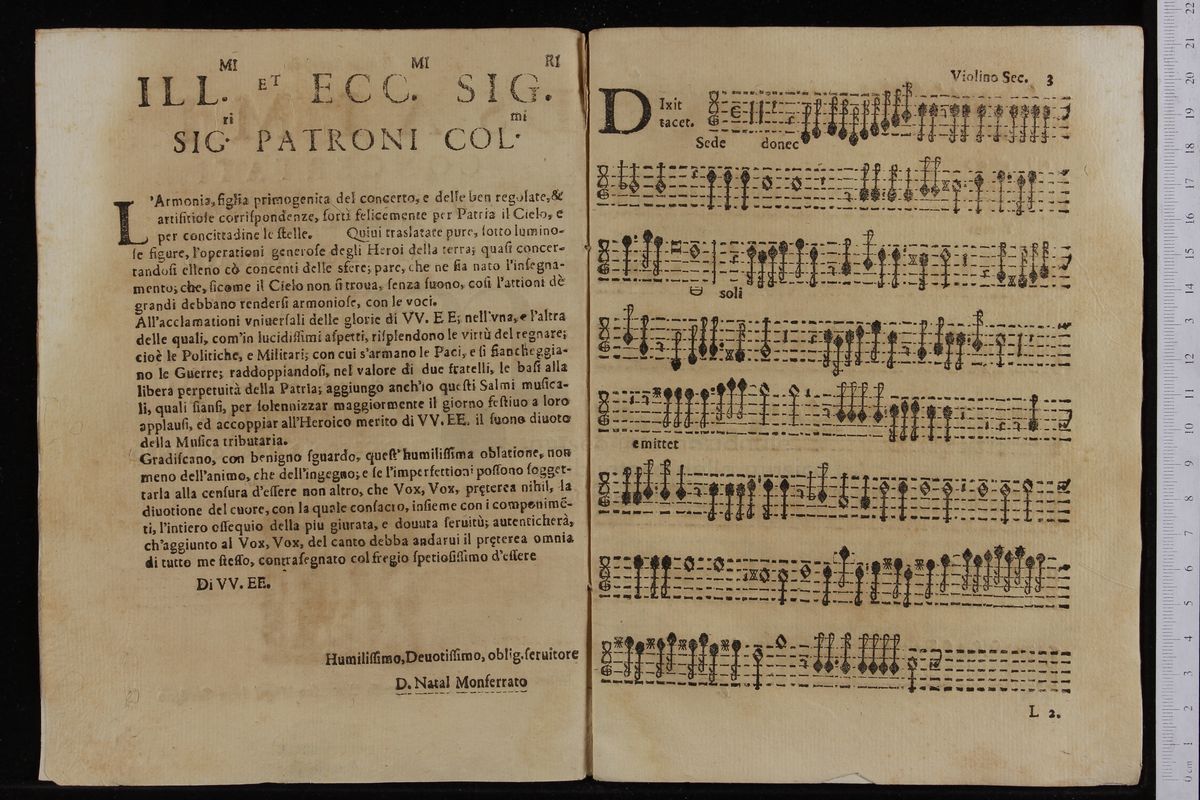 ILL.MI ET ECC.MI SIG.RI
SIG.ri PATRONI COL.mi
L'Armonia, figlia primogenita del concerto, e delle ben regolate, &
artifitiose corrispondenze, sortì felicemente per Patria il Cielo, e
per concittadine le stelle. Quiui traslatate pure, sotto lumino-
se figure, l'operationi generose degli Heroi della terra; quasi concer-
tandosi elleno cò concenti delle sfere; pare, che ne sia nato l'insegna-
mento; che, sicome il Cielo non si troua, senza suono, così l'attioni dè
grandi debbano rendersi armoniose, con le voci.
All'acclamationi vniuersali delle glorie di VV. EE; nell'vna, e l'altra
delle quali, com'in lucidissimi aspetti, risplendono le virtù del regnare;
cioè le Politiche, e Militari; con cui s'armano le Paci, e si fiancheggia-
no le Guerre; raddoppiandosi, nel valore di due fratelli, le basi alla
libera perpetuità della Patria; aggiungo anch'io questi Salmi musica-
li, quali siansi, per solennizzar maggiormente il giorno festiuo a loro
applausi, ed accoppiar all'Heroico merito di VV. EE. il suono diuoto
della Musica tributaria.
Gradiscano, con benigno sguardo, quest'humilissima oblatione, non
meno dell'animo, che dell'ingegno; e se l'imperfettioni possono sogget-
tarla alla censura d'essere non altro, che Vox, Vox, pręterea nihil, la
diuotione del cuore, con la quale consacro, insieme con i componimē-
ti, l'intiero ossequio della piu giurata, e douuta seruitù; autenticherà,
ch'aggiunto al Vox, Vox, del canto debba andarui il pręterea omnia
di tutto me stesso, contrasegnato col fregio spetiosissimo d'essere
Di VV. EE.
Humilissimo, Deuotissimo, oblig. seruitore
D. Natal Monferrato
Violino Sec. 3
DIxit
tacet.
Sede donec
soli
emittet
L 2.